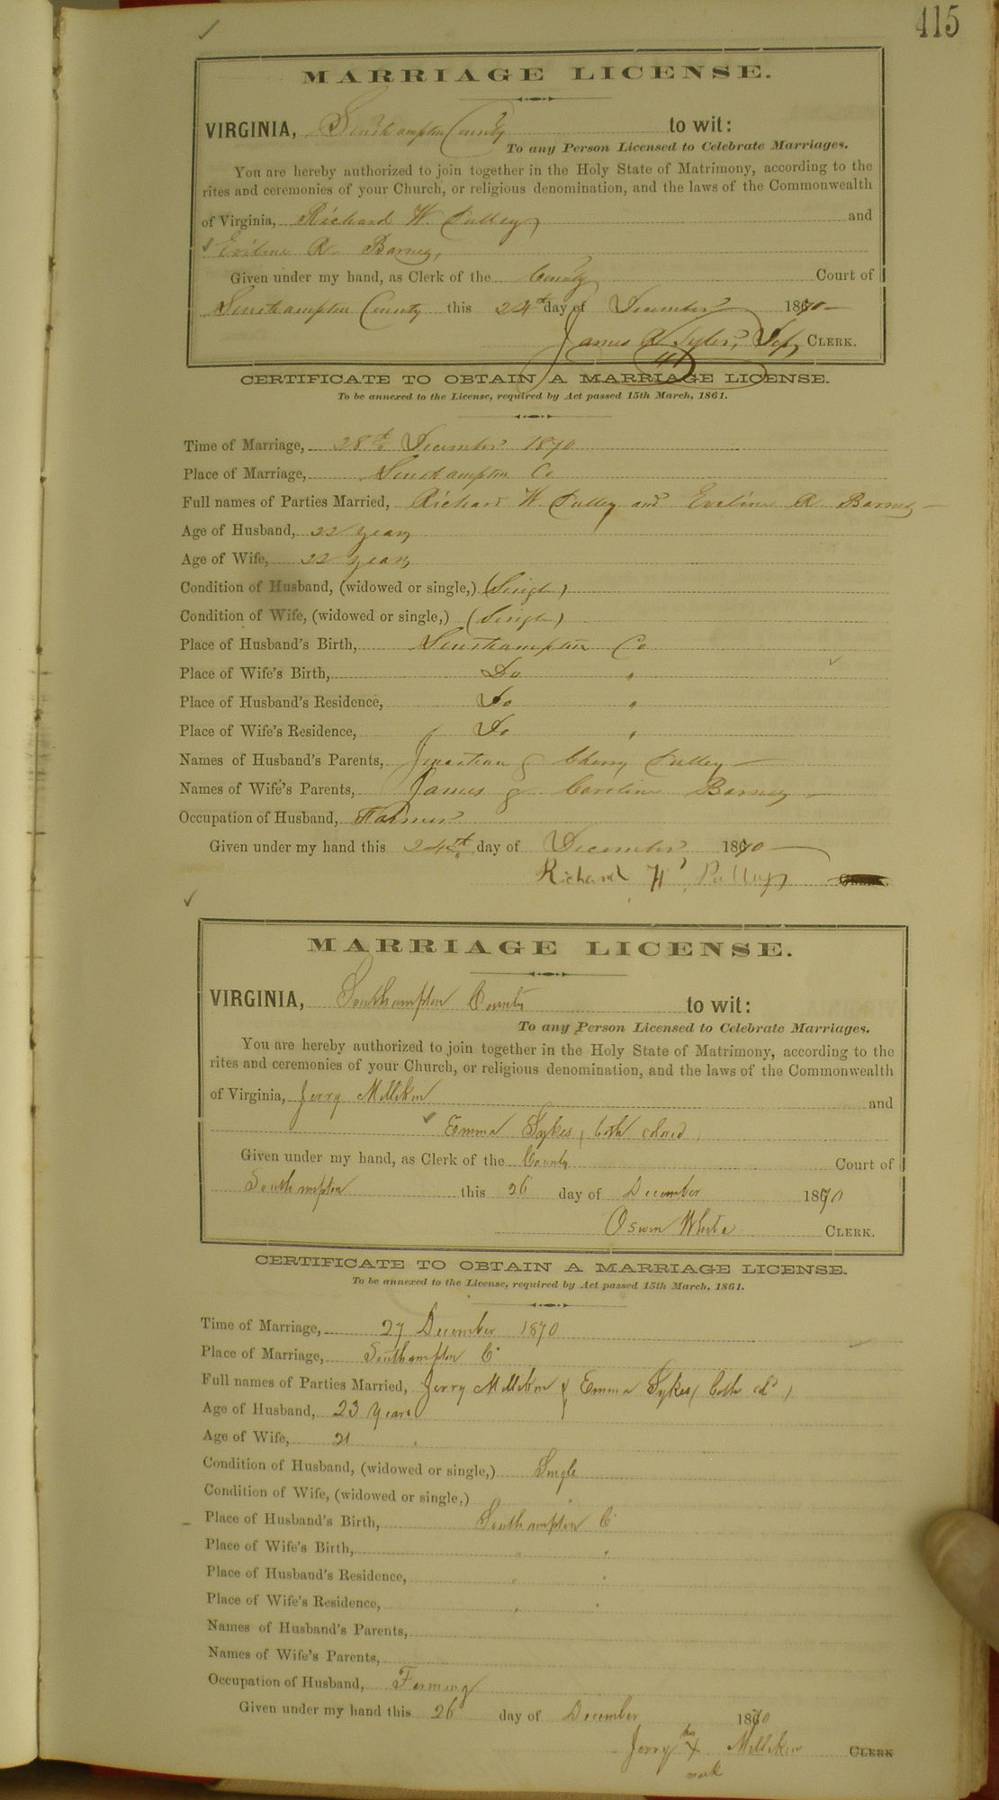 415
MARRIAGE LICENSE.
VIRGINIA, Southampton County to wit:
To any Person Licensed to Celebrate Marriages.
You are hereby authorized to join together in the Holy State of Matrimony, according to the
rites and ceremonies of your Church, or religious denomination, and the laws of the Commonwealth
of Virginia, Richard W. Pulley, and
Eveline R. Barney,
Given under my hand, as Clerk of the County Court of
Southampton County this 24th day of December 1870
James R Tyler, Dep, CLERK.
CERTIFICATE TO OBTAIN A MARRIAGE LICENSE.
To be annexed to the License, required by Act passed 15th March, 1861.
Time of Marriage, 28th December 1870
Place of Marriage, Southampton Co
Full names of Parties Married, Richard W. Pulley and Eveline R Barney
Age of Husband, 22 years
Age of Wife, 22 years
Condition of Husband, (widowed or single,) (Single)
Condition of Wife, (widowed or single,) (Single)
Place of Husband's Birth, Southampton Co
Place of Wife's Birth, Do "
Place of Husband's Residence, Do "
Place of Wife's Residence, Do "
Names of Husband's Parents, & Cherry Pulley
Names of Wife's Parents, James & Caroline Barney
Occupation of Husband, Farmer
Given under my hand this 24th day of December 1870
Richard W. Pulley
MARRIAGE LICENSE.
VIRGINIA, Southampton County to wit:
To any Person Licensed to Celebrate Marriages.
You are hereby authorized to join together in the Holy State of Matrimony, according to the
rites and ceremonies of your Church, or religious denomination, and the laws of the Commonwealth
of Virginia, Jerry Milliken and
Emma Sykes, both colored,
Given under my hand, as Clerk of the County Court of
Southampton this 26 day of December 1870
Oswin White CLERK.
CERTIFICATE TO OBTAIN A MARRIAGE LICENSE.
To be annexed to the License, required by Act passed 15th March, 1861.
Time of Marriage, 27 December 1870
Place of Marriage, Southampton Co
Full names of Parties Married, Jerry Milliken & Emma Sykes (both cd)
Age of Husband, 23 years
Age of Wife, 21 "
Condition of Husband, (widowed or single,) Single
Condition of Wife, (widowed or single,) "
Place of Husband's Birth, Southampton Co
Place of Wife's Birth, " "
Place of Husband's Residence, " "
Place of Wife's Residence, " "
Names of Husband's Parents,
Names of Wife's Parents,
Occupation of Husband, Farming
Given under my hand this 26 day of December 1870
Jerry his X mark Milliken CLERK